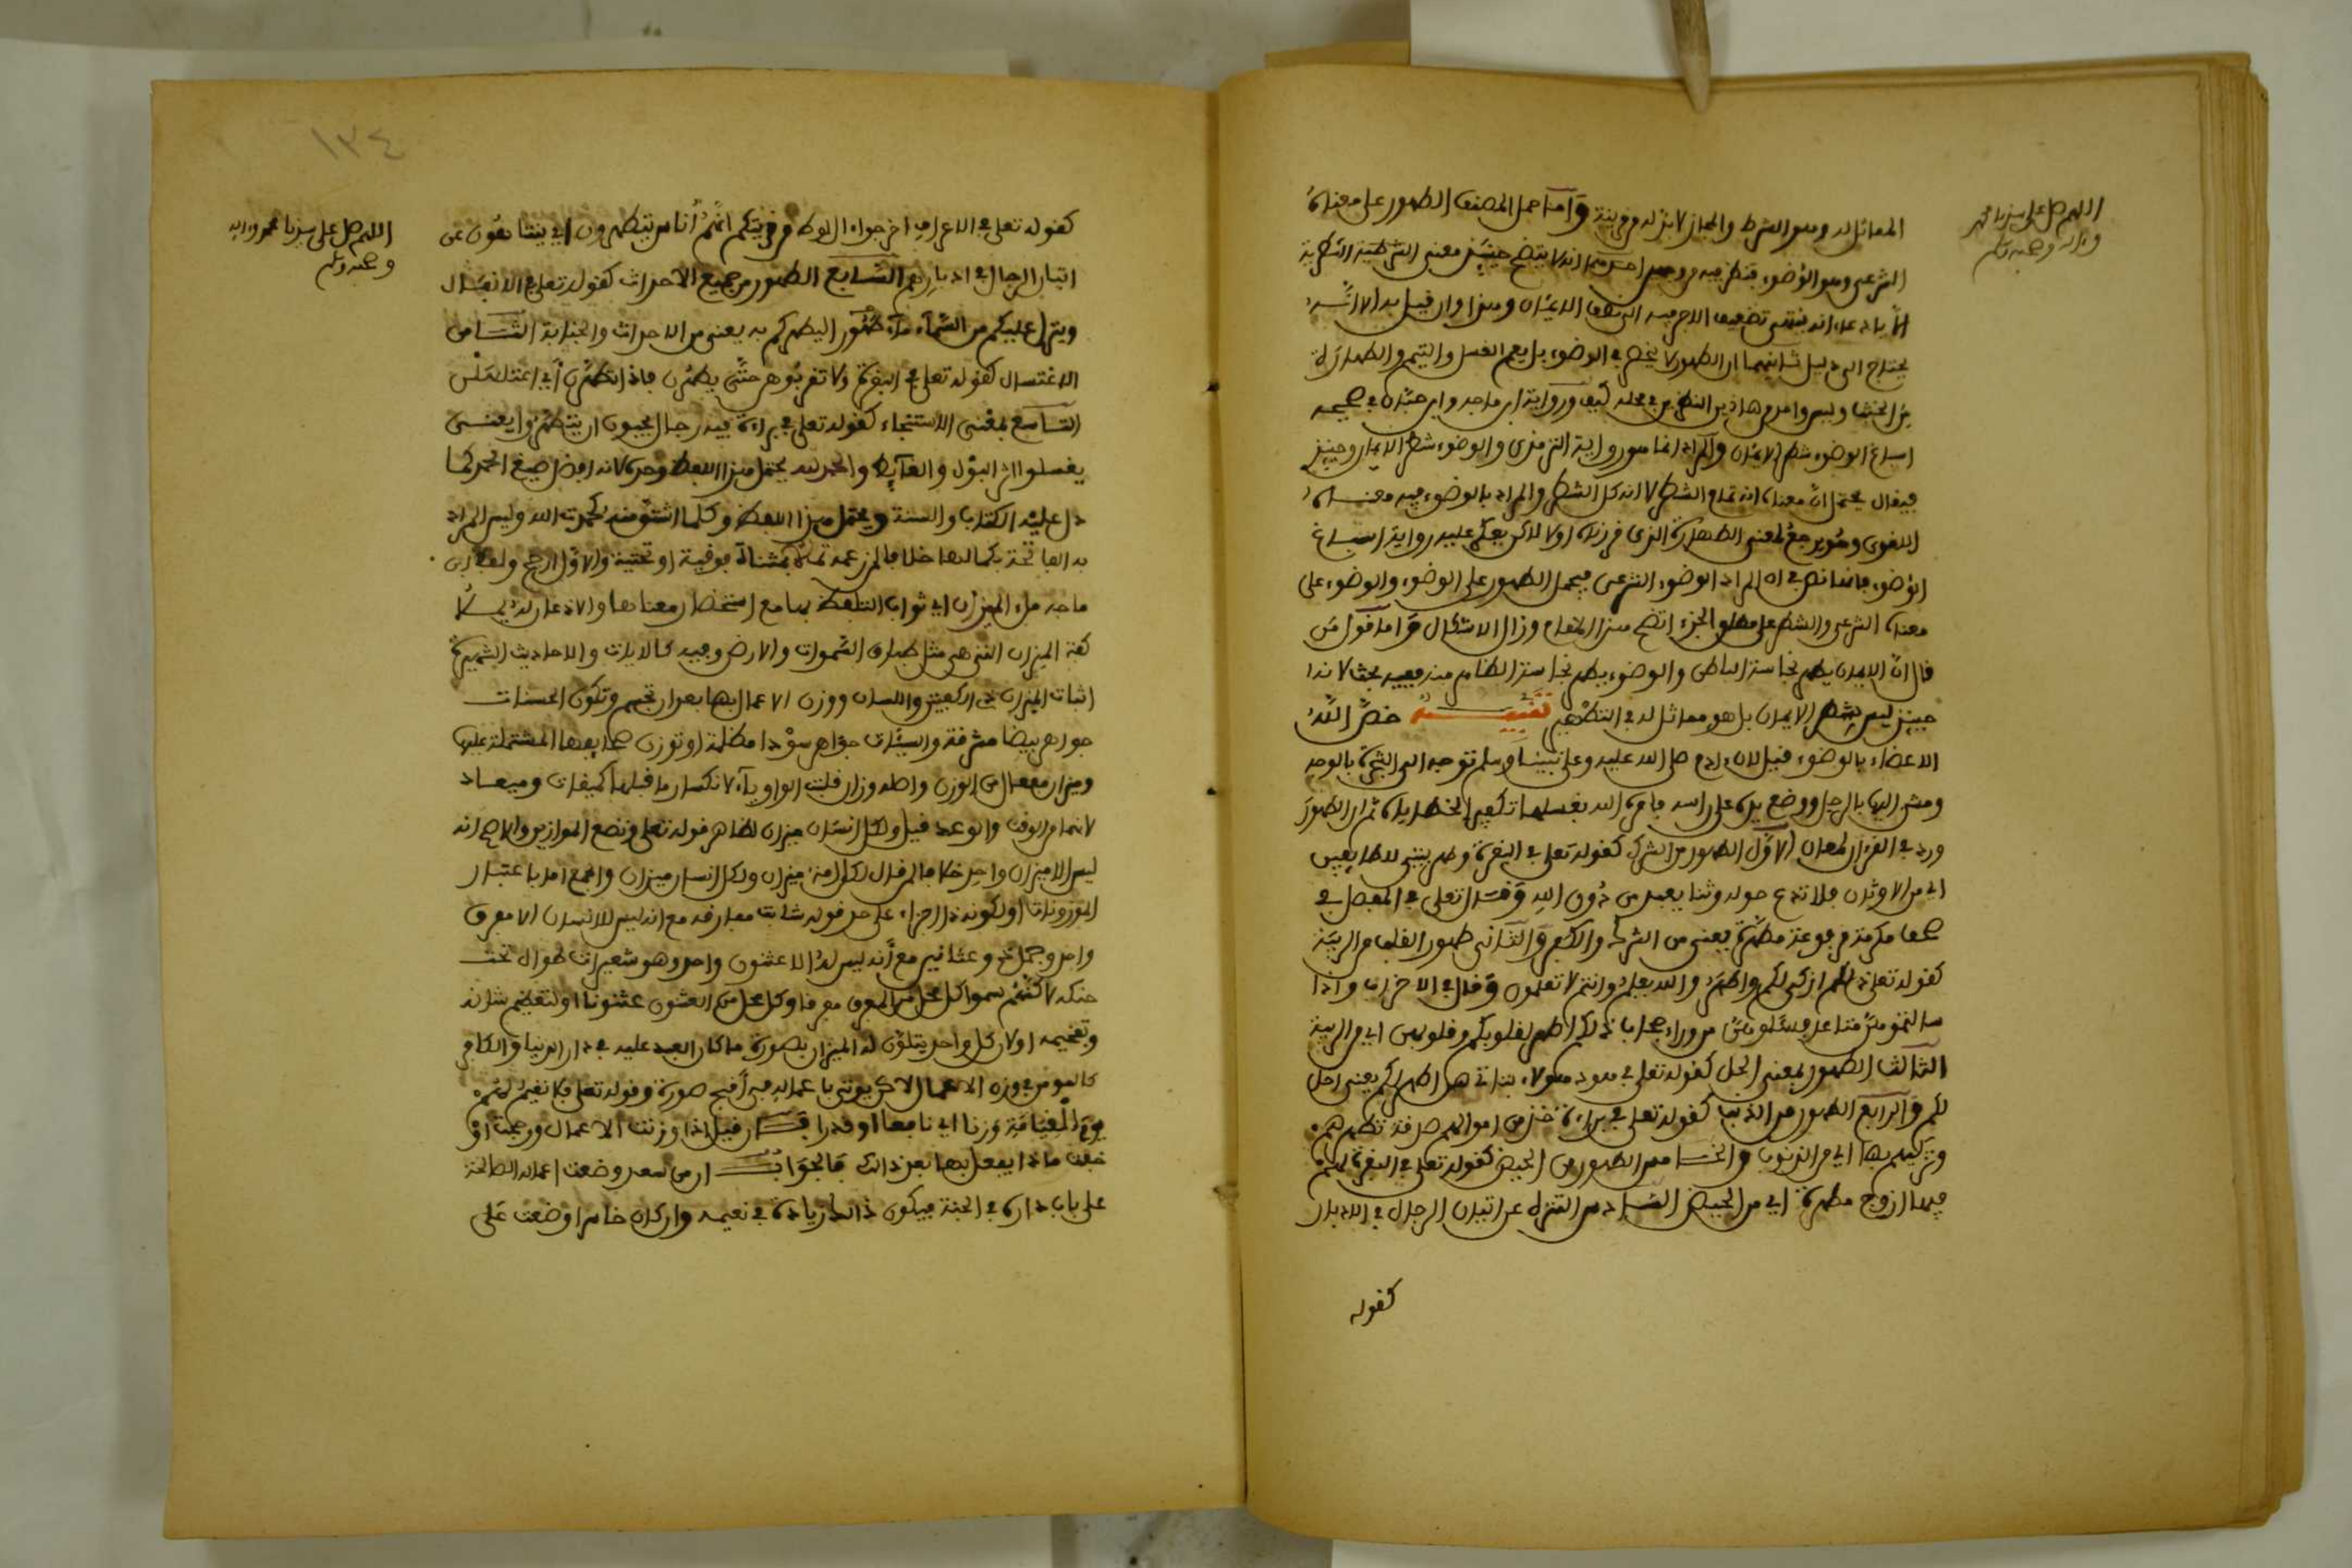 اللهم صل على سيدنا محمد
وءاله وصحبه وسلم
المماثل له وهو الشرط والمجاز لا بد له من قرينة وأما حمل المصنف الطهور على معناه
الشرعي وهو الوضوء فنظر فيه من وجهين احدهما انه لا يتضح حينئذ معنى الشرطية الشطرية
الا بادعاء انه ينتهي تضعيف الاجر فيه الى نصف الايمان وهذا وان قيل به الا انه
يحتاج الى دليل ثانيهما ان الطهور لا ينحصر في الوضوء بل يعم الغسل والتيمم والطهارة
من الخبث وليس واحد من هاذين النظرين في محله كيف ورواية ابن ماجه وابن حبان في صحيحه
اسباغ الوضوء شطر الايمان والمراد انما هو رواية الترمذي والوضوء شطر الايمان وحينئذ
فيقال يحتمل ان معناه انه تمام الشطر لا انه كل الشطر والمراد بالوضوء فيه معناه
اللغوي وهو يرجع لمعنى الطهارة الذي قررناه اولا لاكن يعكر عليه رواية اسباغ
الوضوء فانها نص في ان المراد الوضوء الشرعي فيحمل الطهور على الوضوء والوضوء على
معناه الشرعي والشطر على مطلق الجزء اتضح هذا المقام وزال الاشكال وأما قول من
قال ان الايمان يطهر نجاسة الباطن والوضوء يطهر نجاسة الظاهر منه ففيه بحث لانه
حينئذ ليس شطر الايمان بل هو مماثل له في التطهير تنبيه خص الله
الاعضاء بالوضوء قيل لان ءادم صلى الله عليه وعلى نبينا وسلم توجه الى الشجرة بالوجه
ومشى اليها بالرجل ووضع يده على راسه فامره الله بغسلها تكفيرا لخطاياه ثم ان الطهور
ورد في القرءان لمعان الاول الطهور من الشرك كقوله تعلى في البقرة وطهر بيتي للطايفين
اي من الاوثان فلا تدع حوله وثنا يعبد من دون الله وقال تعلى في المفصل في
صحف مكرمة مرفوعة مطهرة يعني من الشرك والكفر والثاني طهور القلب من الريبة
كقوله تعلى ذالكم ازكى لكم واطهر والله يعلم وانتم لا تعلمون وقال في الاحزاب واذا
سالتموهن متاعا فسئلوهن من وراء حجاب ذالكم اطهر لقلوبكم وقلوبهن اي من الريبة
الثالث الطهور بمعنى الحل كقوله تعلى في هود هؤلاء بناتي هن اطهر لكم يعني احل
لكم والرابع الطهور من الذنب كقوله تعلى في براءة خذ من اموالهم صدقة تطهرهم
وتزكيهم بها اي من الذنوب والخامس الطهور من الحيض كقوله تعلى في البقرة لهم
فيها ازواج مطهرة اي من الحيض السادس التنزه عن اتيان الرجال في الادبار
كقوله
١٣٤
اللهم صل على سيدنا محمد وءاله
وصحبه وسلم
كقوله تعلى في الاعراف اخرجوا ءال لوط من قريتكم انهم أناس يتطهرون اي يتنزهون عن
اتيان الرجال في ادبارهم السابع الطهور من جميع الاحداث كقوله تعلى في الانفال
وينزل عليكم من السماء ماء طهورا ليطهركم به يعني من الاحداث والجنابة الثامن
الاغتسال كقوله تعلى في البقرة ولا تقربوهن حتى يطهرن فاذا تطهرن أي اغتسلن
التاسع بمعنى الاستنجاء كقوله تعلى في براءة فيه رجال يحبون ان يتطهروا يعني
يغسلوا اثر البول والغايط والحمد لله يحتمل هذا اللفظ وحده لانه افضل صيغ الحمد كما
دل عليه الكتاب والسنة ويحتمل هذا اللفظ وكلما اشتق منه كحمدت الله وليس المراد
به الفاتحة بكمالها خلافا لمن زعمه تملأ بمثناة فوقية او تحتية والاول ارجح ولفظ ابن
ماجه ملء الميزان اي ثواب التلفظ بها مع استحضار معناها والاذعان له يملأ
كفة الميزان التي هي مثل طباق السموات والارض وفيه كالايات والاحاديث الشهيرة
اثبات الميزان ذي الكفتين واللسان ووزن الاعمال بها بعد ان تجسم وتكون الحسنات
جواهر بيضا مشرقة والسيئات جواهر سودا مظلمة او توزن صحايفها المشتملة عليها
وميزان مفعال من الوزن واصله وزان قلبت الواو ياء لانكسار ما قبلها كميقات وميعاد
لانهما من الوقت والوعد قيل ولكل انسان ميزان لظاهر قوله تعلى ونضع الموازين والاصح انه
ليس الا ميزان واحد خلافا لمن قال لكل امة ميزان ولكل انسان ميزان والجمع اما باعتبار
الموزونات او لكونه ذا اجزاء على حد قوله شابت مفارقه مع انه ليس للانسان الا مفرق
واحد وجمل ذو عثانين مع أنه ليس له الا عثنون واحد وهو شعيرات طوال تحت
حنكه لاكنهم سموا كل محل من المفرق مفرقا وكل محل من العثنون عثنونا او لتعظيم شانه
وتفخيمه او لان كل واحد يتلون له الميزان بصورة ما كان العبد عليه في دار الدنيا والكافر
كالمومن في وزن الاعمال لاكن يوتى باعماله في أقبح صورة وقوله تعلى فلا نقيم لهم
يوم القيامة وزنا اي نافعا او قدرا فان قيل اذا وزنت الاعمال ورجحت او
خفت ماذا يفعل بها بعد ذالك فالجواب ان من سعد وضعت اعماله الصالحة
على باب داره في الجنة فيكون ذالك زيادة في نعيمه وان كان خاسرا وضعت على